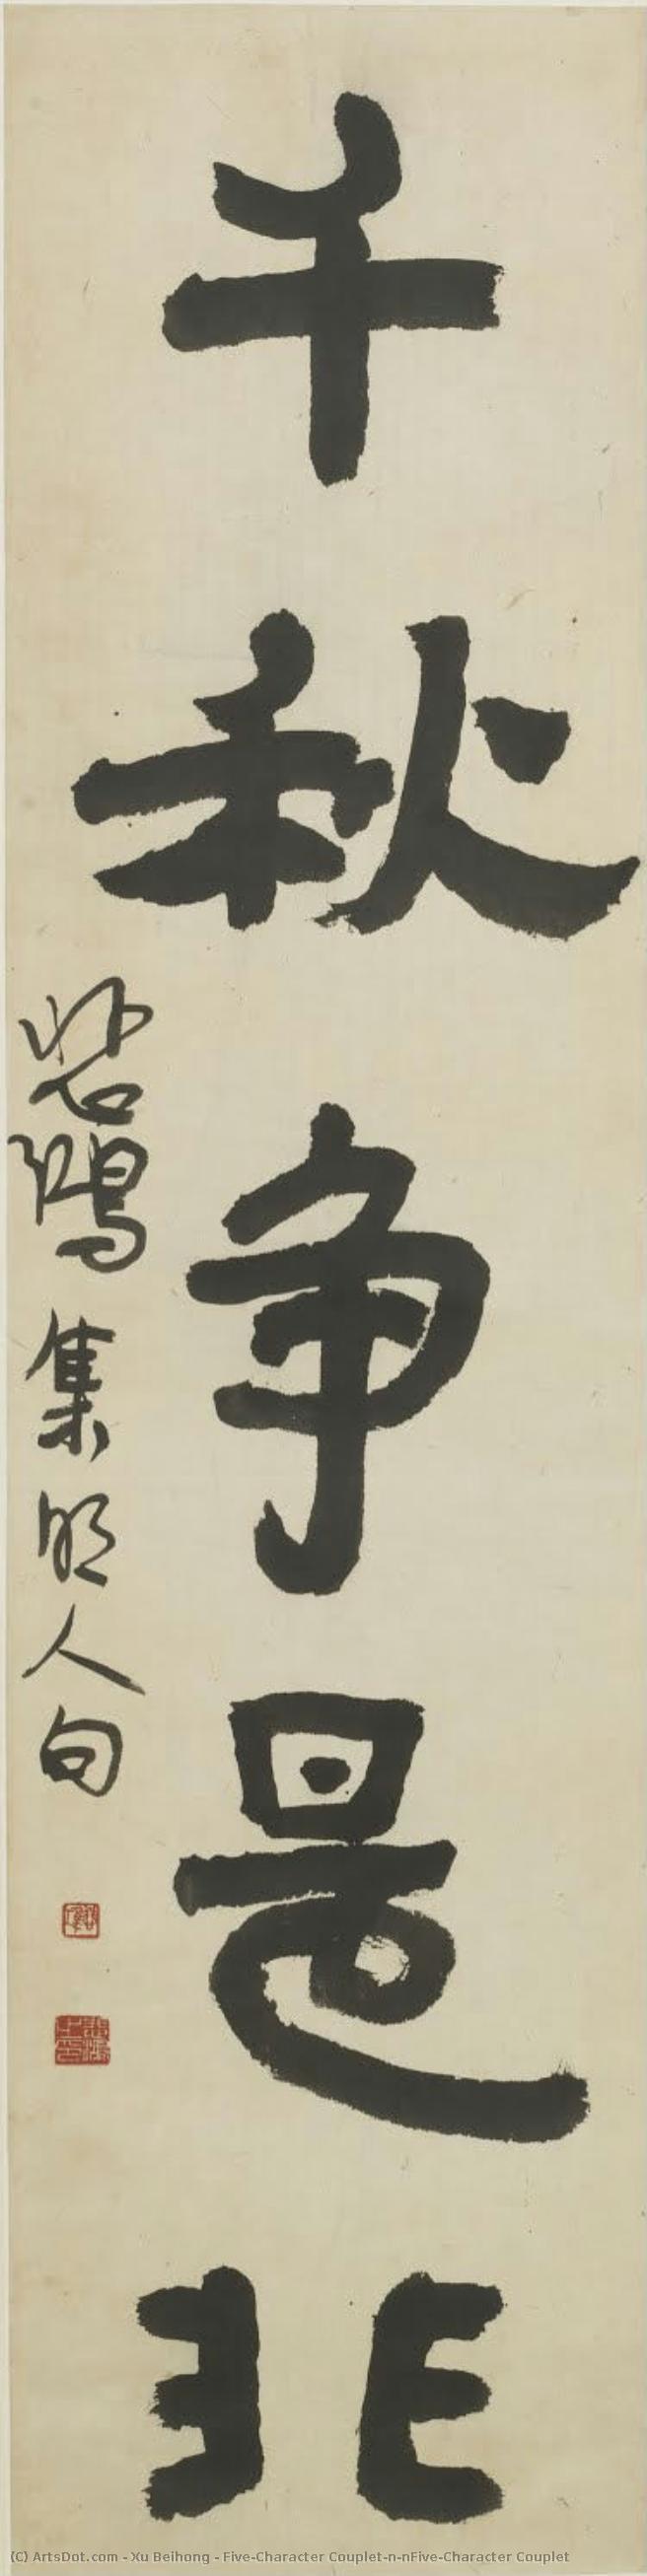 千秋争是非
悲鴻集明人句
悲鴻
(C) ArtsDot.com - Xu Beihong - Five-Character Couplet-n-nFive-Character Couplet